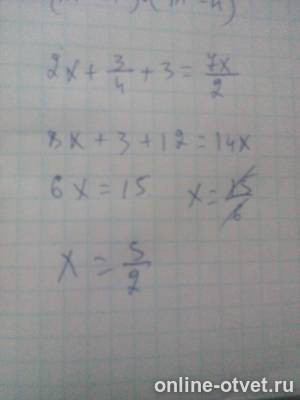 2x + 3/4 + 3 = 7x/2
8x + 3 + 12 = 14x
6x = 15 x = 15/6
x = 5/2
online-otvet.ru